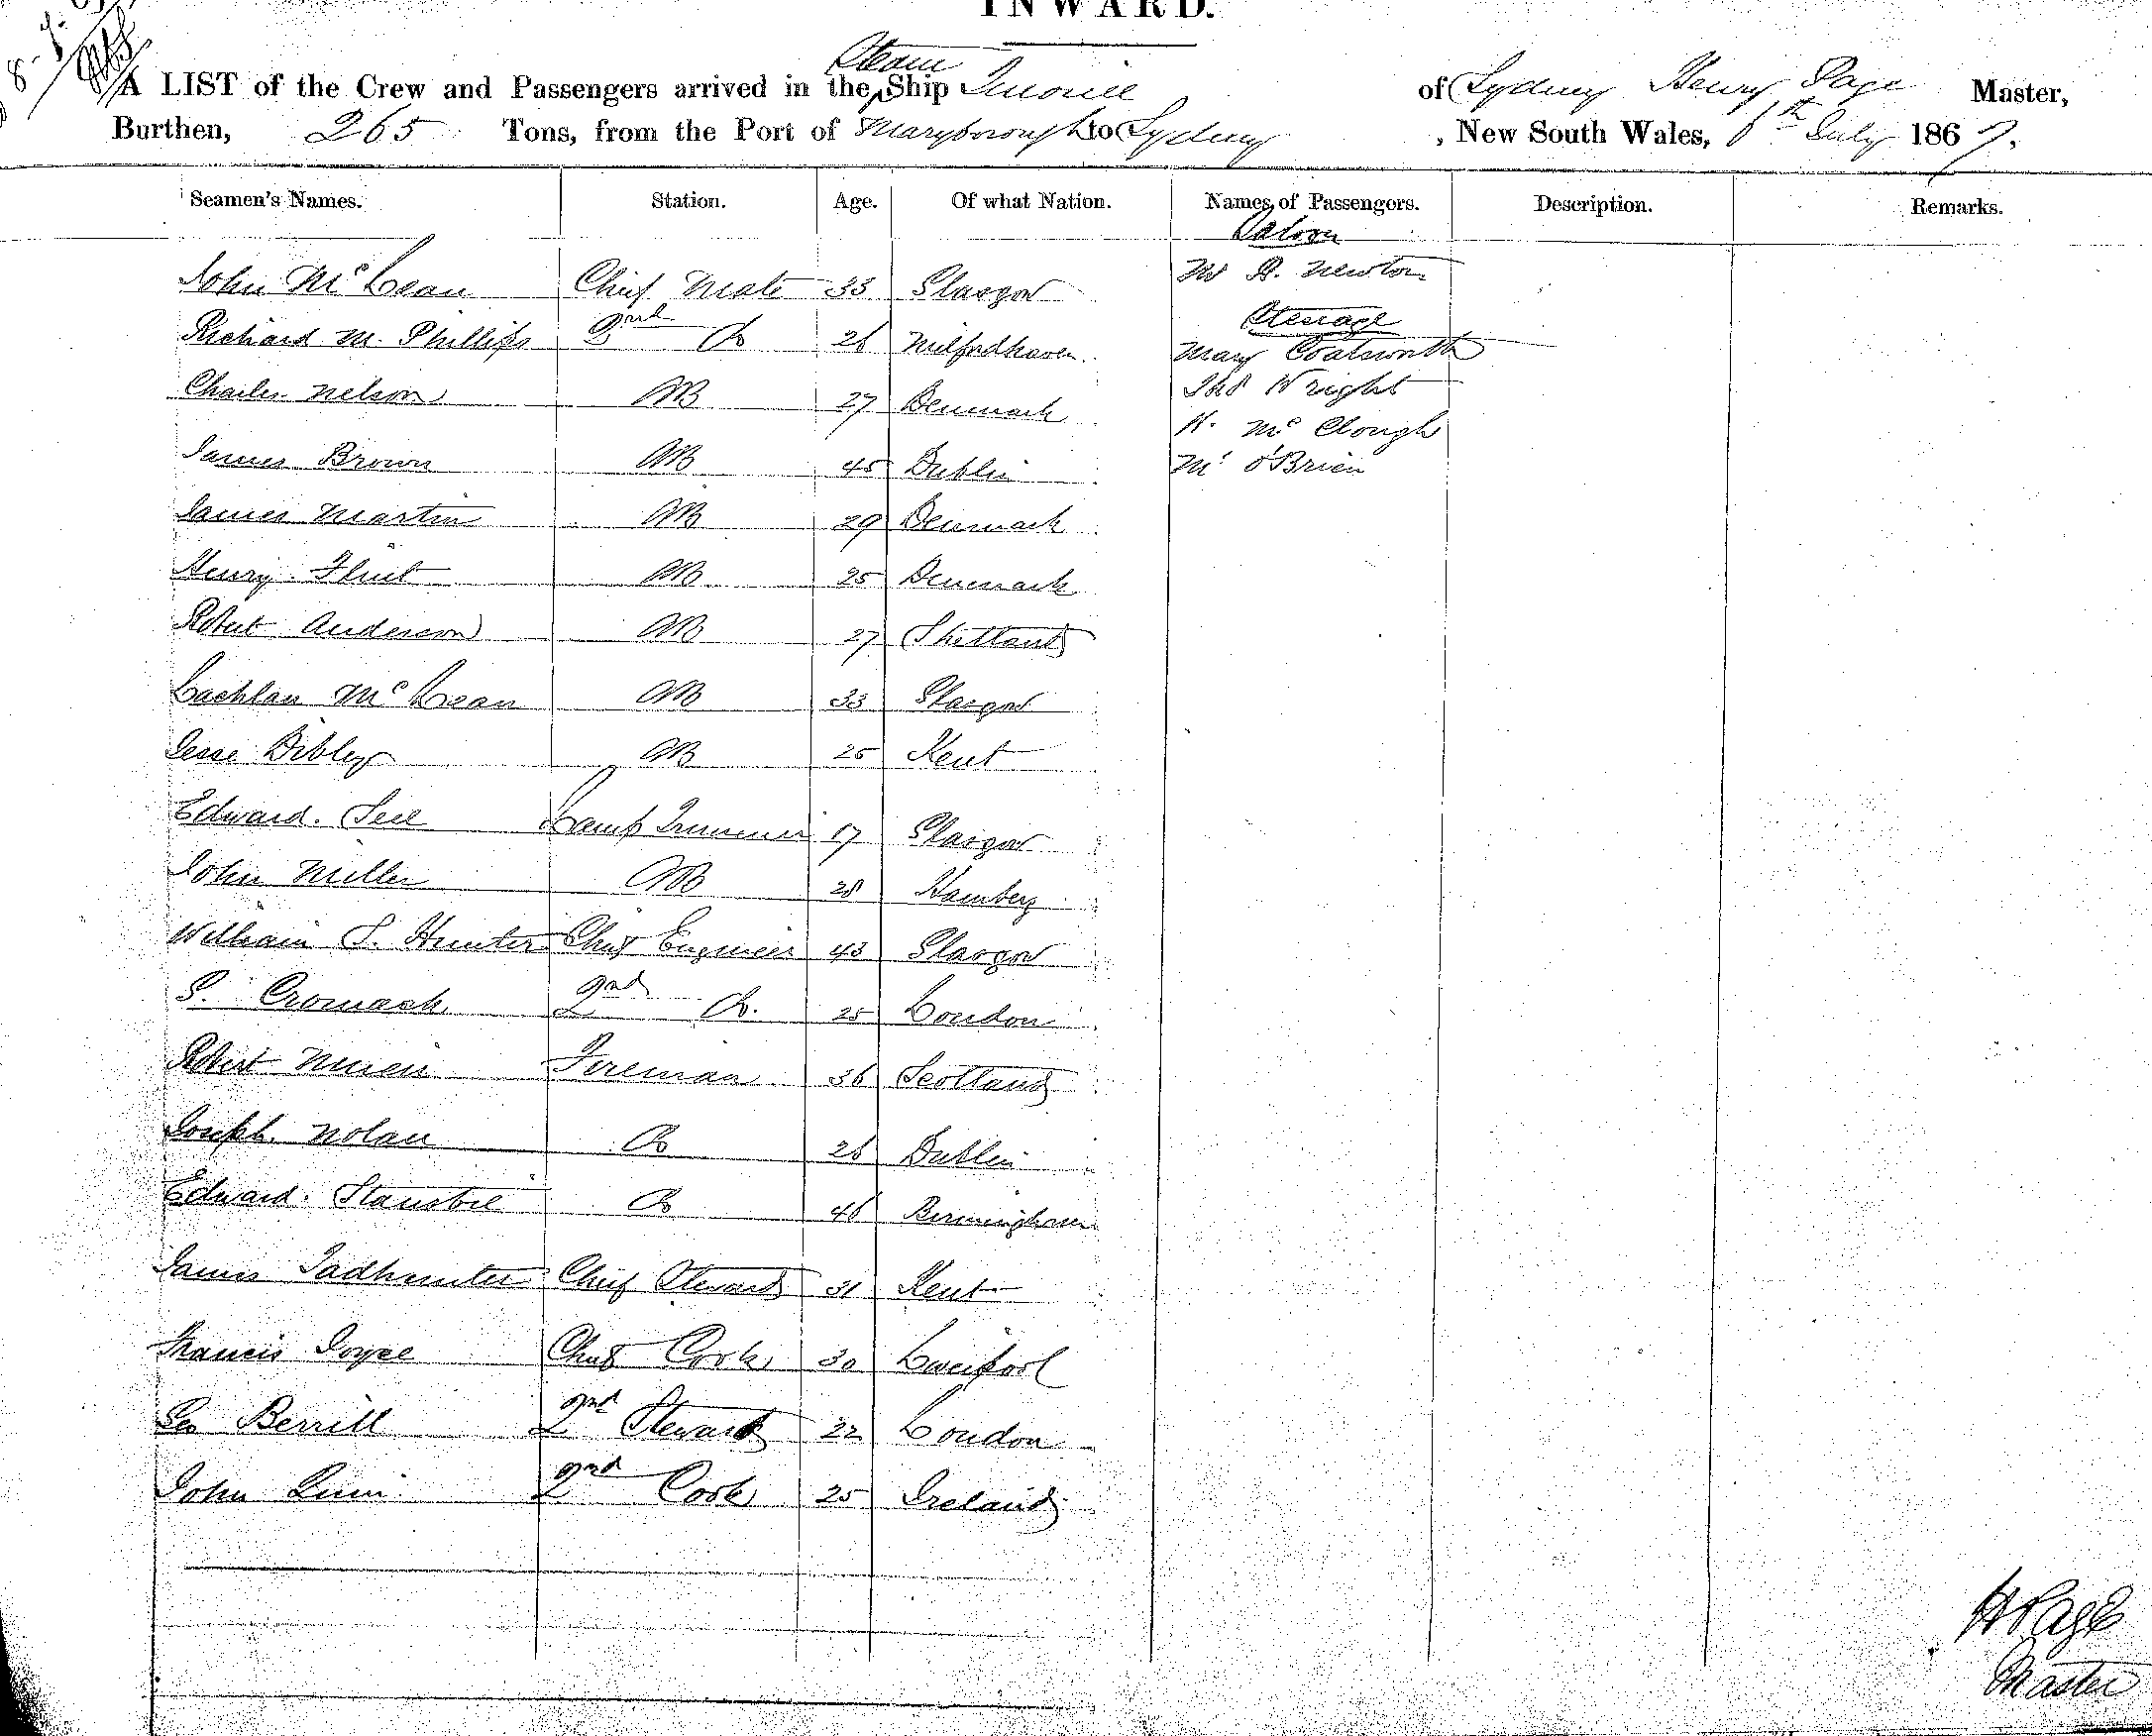 INWARD.
Steam
A LIST of the Crew and Passengers arrived in the Ship of Sydney Henry Page Master,
Burthen, 265 Tons, from the Port of Maryborough to Sydney, New South Wales, 6th July 1867.
Seamen's Names. Station. Age. Of what Nation. Names of Passengers. Description. Remarks.
Saloon
John McLean Chief Mate 33 Glasgow Newton
Steerage
Richard M. Phillips 2nd Do 26 Milfordhaven Mary Coatsworth
Charles Nelson AB 27 Denmark Thos Wright
H. McClough
James Brown AB 45 Dublin Mr O'Brien
James Martin AB 29 Denmark
Henry AB 25 Denmark
Robert Anderson AB 27 Shetland
Lachlan McLean AB 33 Glasgow
Jesse Dibley AB 25 Kent
Edward Lamp Trimmer 17 Glasgow
John Miller AB 28 Hamburg
William S. Hunter Chief Engineer 43 Glasgow
Cromack 2nd Do. 25 London
Robert Fireman 36 Scotland
Joseph Nolan Do 26 Dublin
Edward Do 46 Birmingham
James Tadhunter Chief Steward 31 Kent
Francis Joyce Chief Cook 30 Liverpool
Geo Berrill 2nd Steward 22 London
John 2nd Cook 25 Ireland
H Page
Master